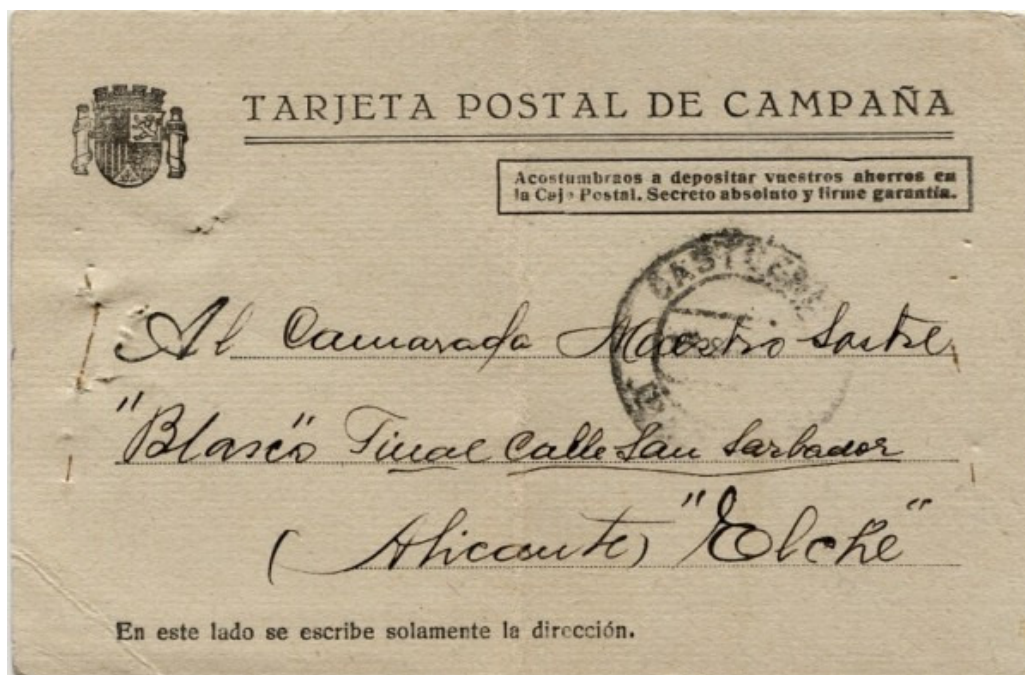 TARJETA POSTAL DE CAMPAÑA
Acostumbraos a depositar vuestros ahorros en
la Caja Postal. Secreto absoluto y firme garantía.
CASTUERA
Al Camarada Maestro Sastre,
"Blasco" Final Calle San Sarbador
(Alicante) "Elche"
En este lado se escribe solamente la dirección.